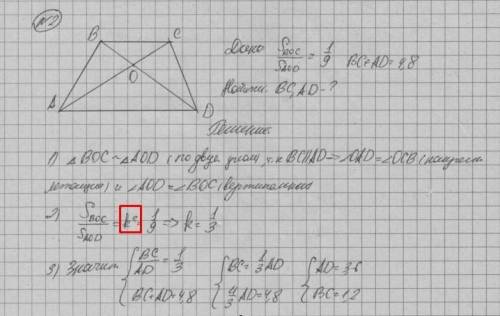 №2
B C
O
A D
Дано: S_BOC/S_AOD = 1/9 BC+AD=4,8
Найти: BC, AD-?
Решение:
1) △BOC ~ △AOD (по двум углам, т.к BC||AD => ∠OAD=∠OCB (накрест
лежащие) и ∠AOD=∠BOC (вертикальные)
2) S_BOC/S_AOD = k² = 1/9 => k = 1/3
3) Значит { BC/AD = 1/3 { BC = 1/3 AD { AD = 3.6
{ BC+AD=4,8 { 4/3 AD=4,8 { BC=1,2